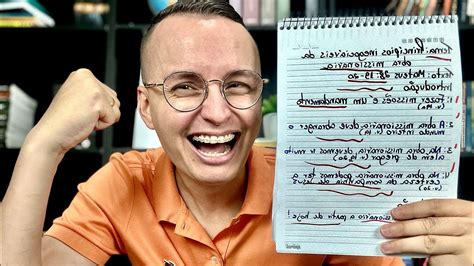 Tema: Princípios inegociáveis da
obra missionária
Texto: Mateus 28.19-20
Introdução
1: Fazer missões é um mandamento
2: A obra missionária deve abranger o
mundo inteiro
3: Na obra missionária, devemos ir muito
além de pregar
4: Na obra missionária podemos ter a
certeza da companhia de Jesus
missionário a partir de hoje!